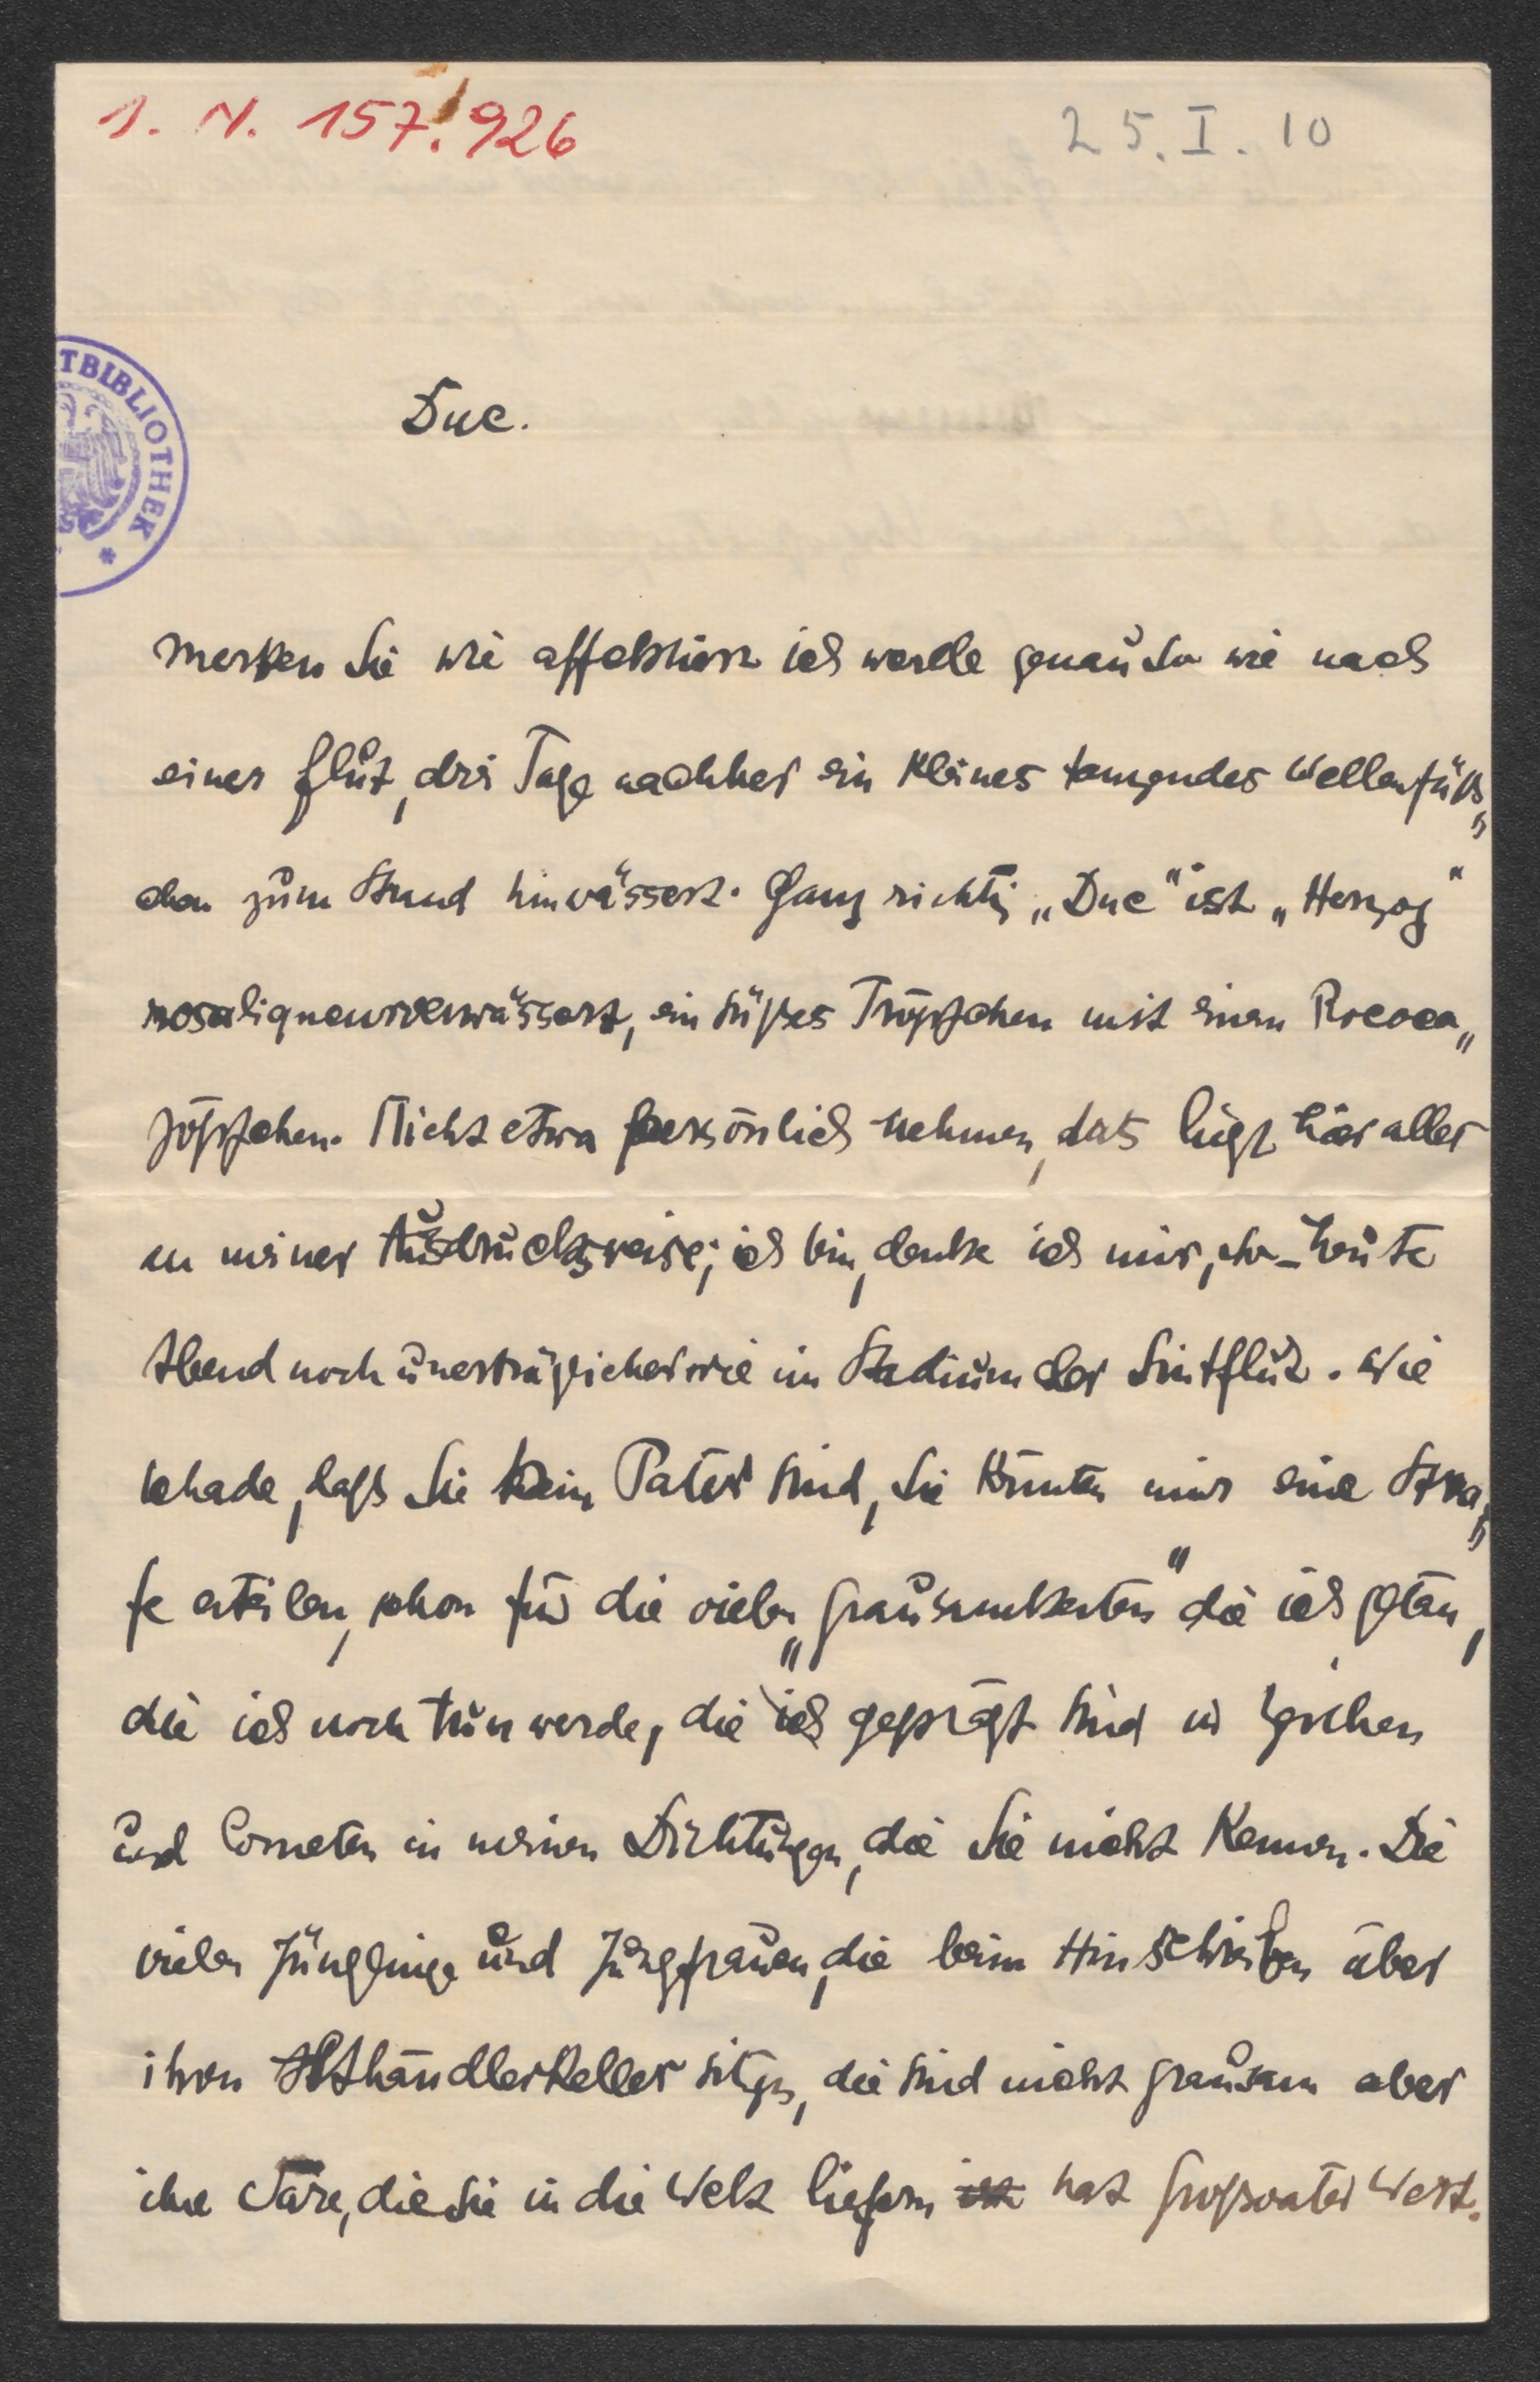 I. N. 157.926
25. I. 10
TBIBLIOTHEK *
Duc.
Merken Sie wie affektiert ich werde genau so wie nach
einer Flut, drei Tage nachher ein kleines tanzendes Wellenfüß„
chen zum Strand hinwässert. Ganz richtig „Duc" ist „Herzog"
rosaliqueurverwässert, ein süßes Tröpfchen mit einem Rococo„
zöpfchen. Nicht etwa persönlich nehmen, das liegt hier alles
in meiner Ausdrucksweise; ich bin, denke ich mir, so – heute
Abend noch unerträglicher wie im Stadium der Sintflut. Wie
schade, daß Sie kein Pater sind, Sie könnten mir eine Stra„
fe erteilen, schon für die vielen „Grausamkeiten" die ich getan,
die ich noch tun werde, die ich geprägt sind in Zeichen
und Cometen in meinen Dichtungen, die Sie nicht kennen. Die
vielen Jünglinge und Jungfrauen, die beim Hinschreiben über
ihren Althändlerkeller sitzen, die sind nicht grausam aber
ihre Ware, die sie in die Welt liefern ist hat Großvater Wert.